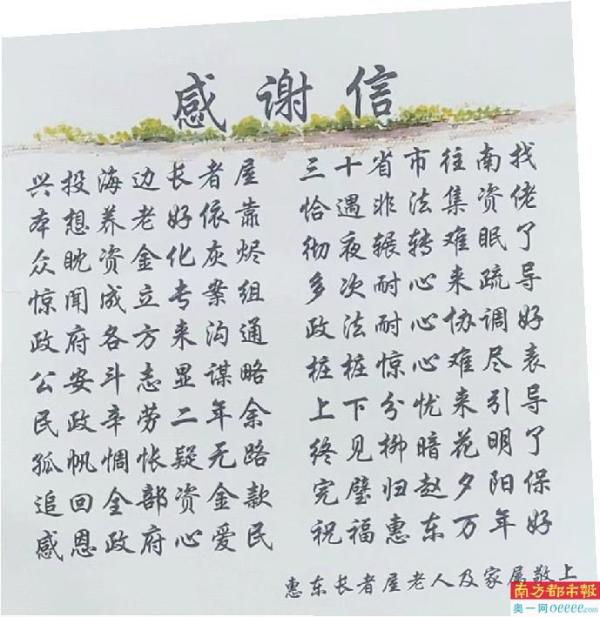 感谢信
兴投海边长者屋 三十省市往南找
本想养老好依靠 恰遇非法集资佬
众眈资金化灰烬 彻夜辗转难眠了
惊闻成立专案组 多次耐心来疏导
政府各方来沟通 政法耐心协调好
公安斗志显谋略 桩桩惊心难尽表
民政辛劳二年余 上下分忧来引导
孤帆惆怅疑无路 终见柳暗花明了
追回全部资金款 完璧归赵夕阳保
感恩政府心爱民 祝福惠东万年好
惠东长者屋老人及家属敬上
南方都市報
奥一网oeeee.com